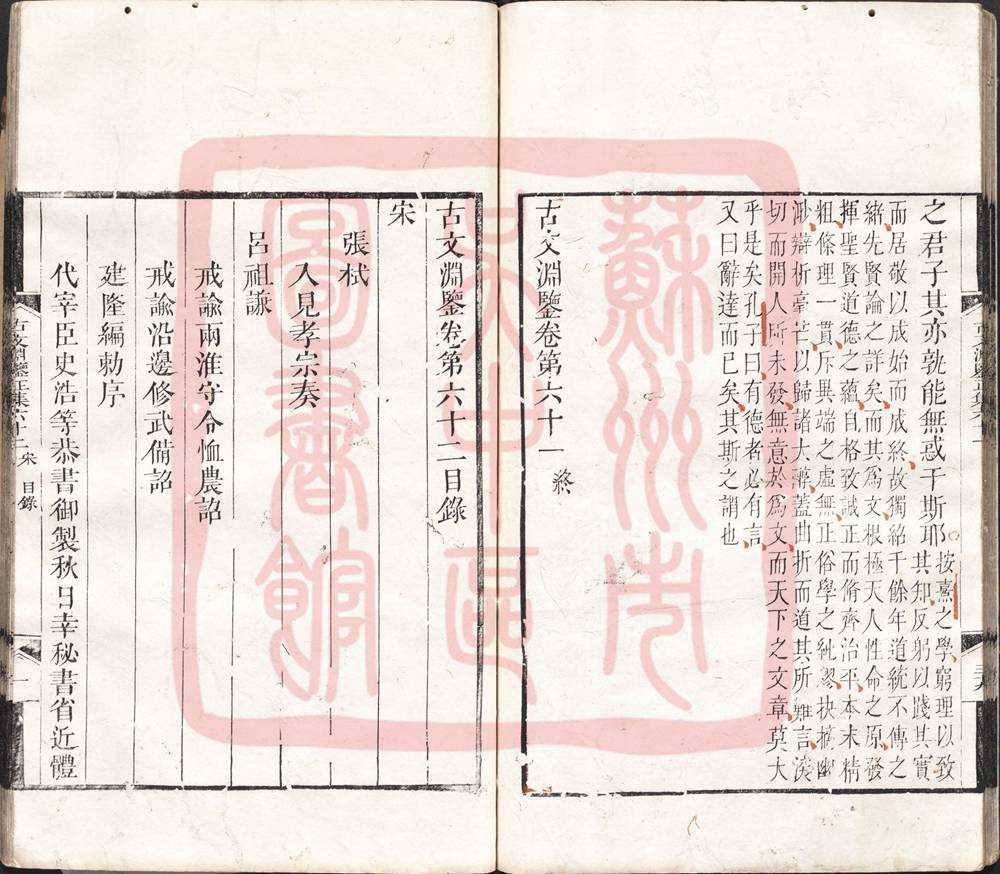 之君子其亦孰能無惑于斯耶按熹之學窮理以致
其知反躬以踐其實
而居敬以成始而成終故獨紹千餘年道統不傳之
緒先賢論之詳矣而其為文根極天人性命之原發
揮聖賢道德之蘊自格致誠正而脩齊治平本末精
粗條理一貫斥異端之虛無正俗學之紕繆抉摘幽
渺辯析毫芒以歸諸大藥蓋曲折而道其所難言淡
切而開人所未發無意於為文而天下之文章莫大
乎是矣孔子曰有德者必有言
又曰辭達而已矣其斯之謂也
古文淵鑒卷第六十一 終
古文淵鑒卷第六十二目錄
宋
張栻
入見孝宗奏
呂祖謙
戒諭兩淮守令恤農詔
戒諭沿邊修武備詔
建隆編勅序
代宰臣史浩等恭書御製秋日幸秘書省近體
古文淵鑒正集六十二 宋 目錄
一
蘇州市吳中區圖書館